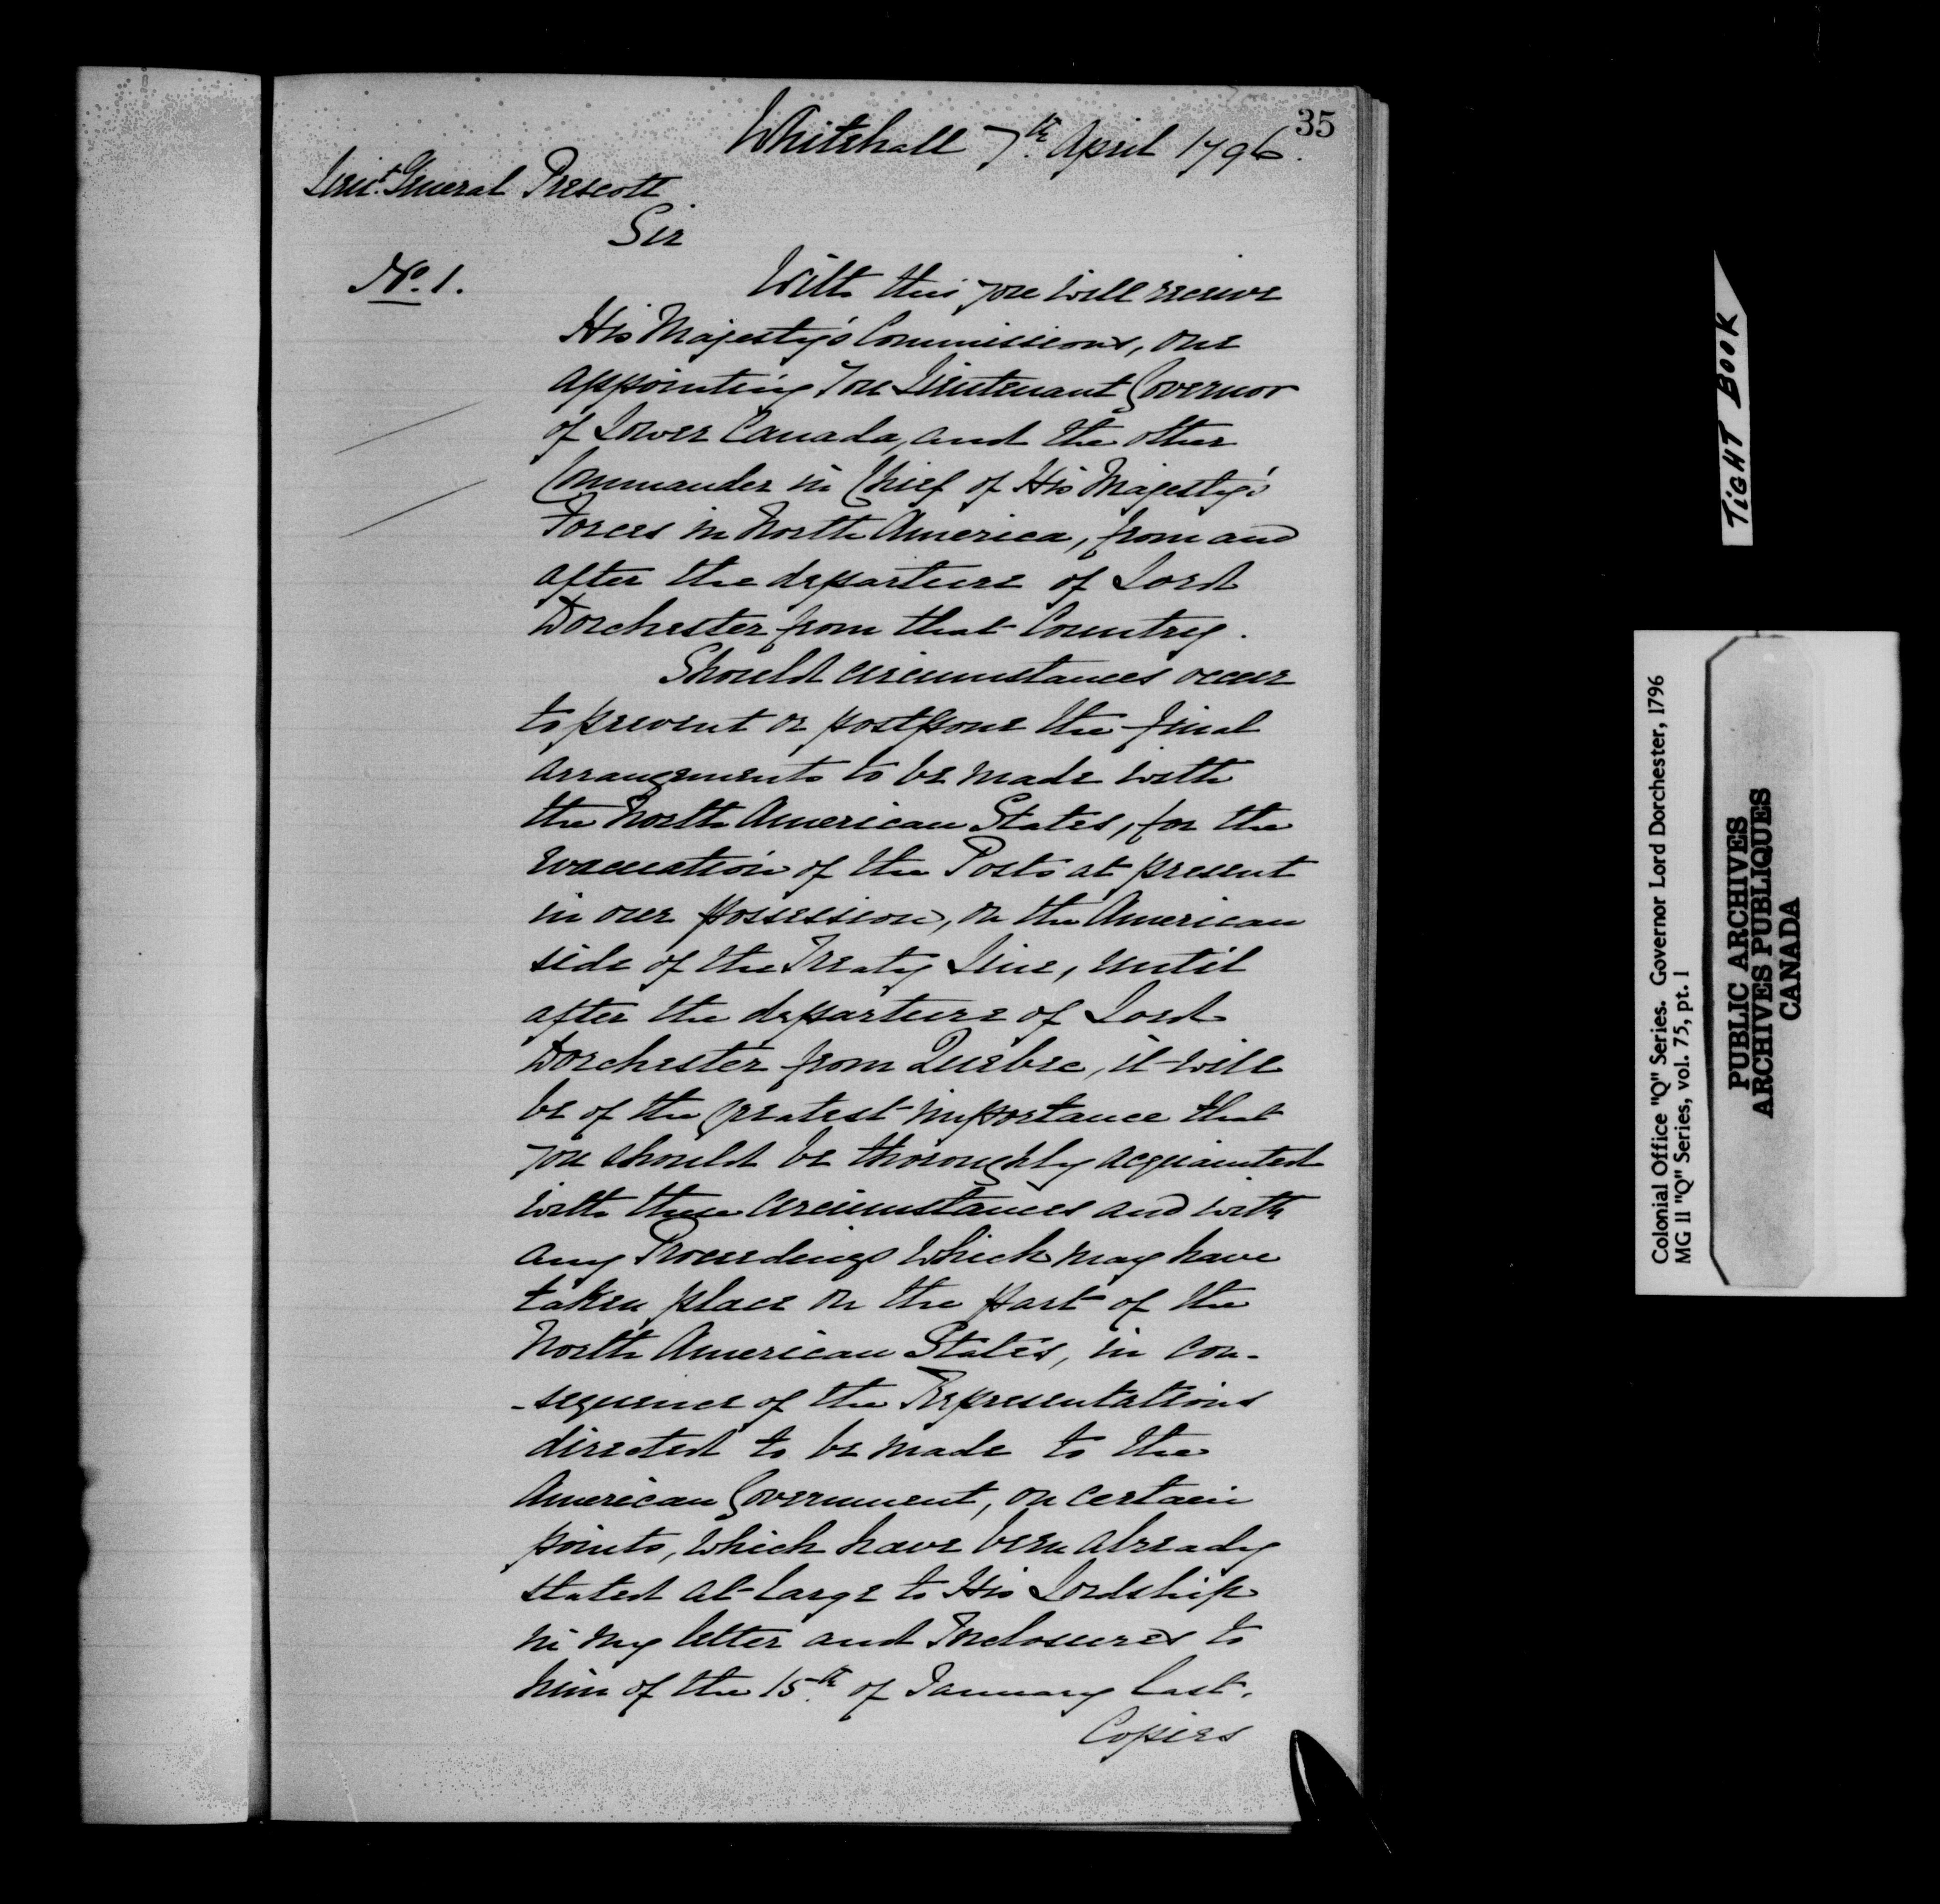 35
Whitehall 7th. April 1796.
Lieut. General Prescott
Sir
No. 1.
With this you will receive
His Majesty's Commissions, one
appointing You Lieutenant Governor
of Lower Canada, and the other
Commander in Chief of His Majesty's
Forces in North America, from and
after the departure of Lord
Dorchester from that Country.
Should circumstances occur
to prevent or postpone the final
arrangements to be made with
the North American States, for the
evacuation of the Posts at present
in our possession, on the American
side of the Treaty Line, until
after the departure of Lord
Dorchester from Quebec, it will
be of the greatest importance that
you should be thoroughly acquainted
with these circumstances and with
any Proceedings which may have
taken place on the part of the
North American States, in con-
-sequence of the Representations
directed to be made to the
American Government, on certain
points, which have been already
stated at large to His Lordship
in my letter and Inclosures to
him of the 15th. of January last.
Copies
TIGHT BOOK
Colonial Office "Q" Series. Governor Lord Dorchester, 1796
MG 11 "Q" Series, vol. 75, pt. 1
PUBLIC ARCHIVES
ARCHIVES PUBLIQUES
CANADA